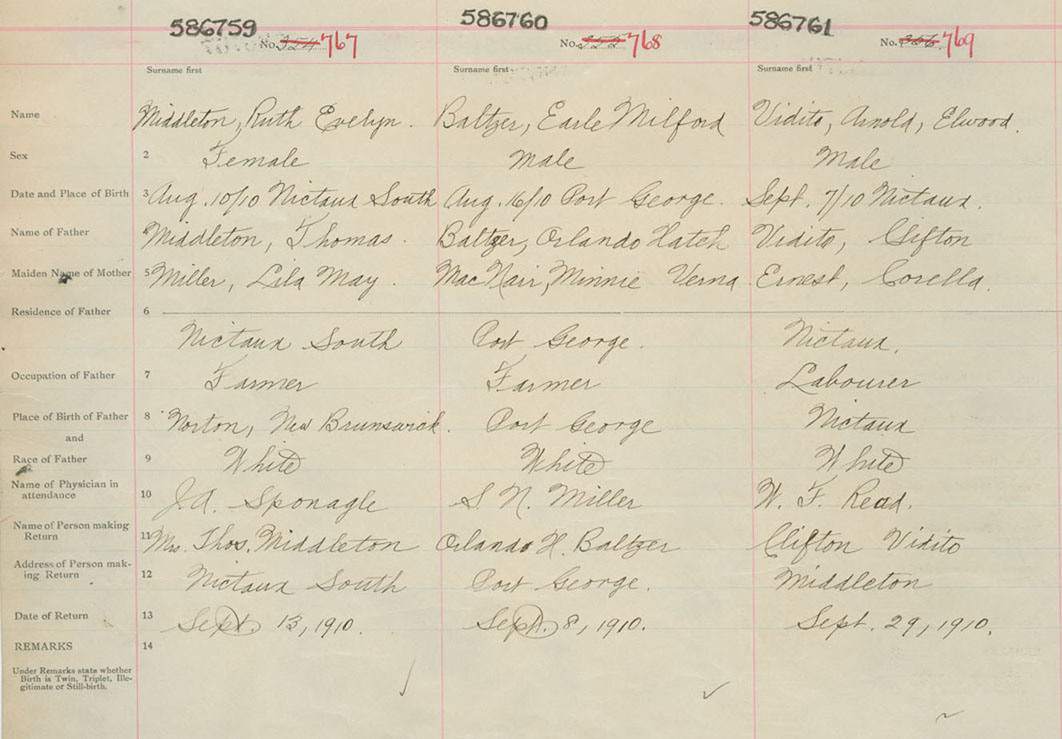 586759 586760 586761
No. 354 767 No. 355 768 No. 356 769
Surname first Surname first Surname first
Name Middleton, Ruth Evelyn. Baltzer, Earle Milford Vidito, Arnold, Elwood.
Sex 2 Female Male Male
Date and Place of Birth 3 Aug. 10/10 Nictaux South Aug. 16/10 Port George. Sept. 7/10 Nictaux.
Name of Father Middleton, Thomas. Baltzer, Orlando Hatch Vidito, Clifton
Maiden Name of Mother 5 Miller, Lila May. MacNair, Minnie Verna Ernest, Corella.
Residence of Father 6
Nictaux South Port George. Nictaux.
Occupation of Father 7 Farmer Farmer Labourer
Place of Birth of Father 8 Norton, New Brunswick. Port George Nictaux
and
Race of Father 9 White White White
Name of Physician in
attendance 10 J.A. Sponagle S. N. Miller W. F. Read.
Name of Person making
Return 11 Mrs. Thos. Middleton Orlando H. Baltzer Clifton Vidito
Address of Person mak-
ing Return 12 Nictaux South Port George. Middleton
Date of Return 13 Sept. 13, 1910. Sept. 8, 1910. Sept. 29, 1910.
REMARKS 14
Under Remarks state whether
Birth is Twin, Triplet, Ille-
gitimate or Still-birth.